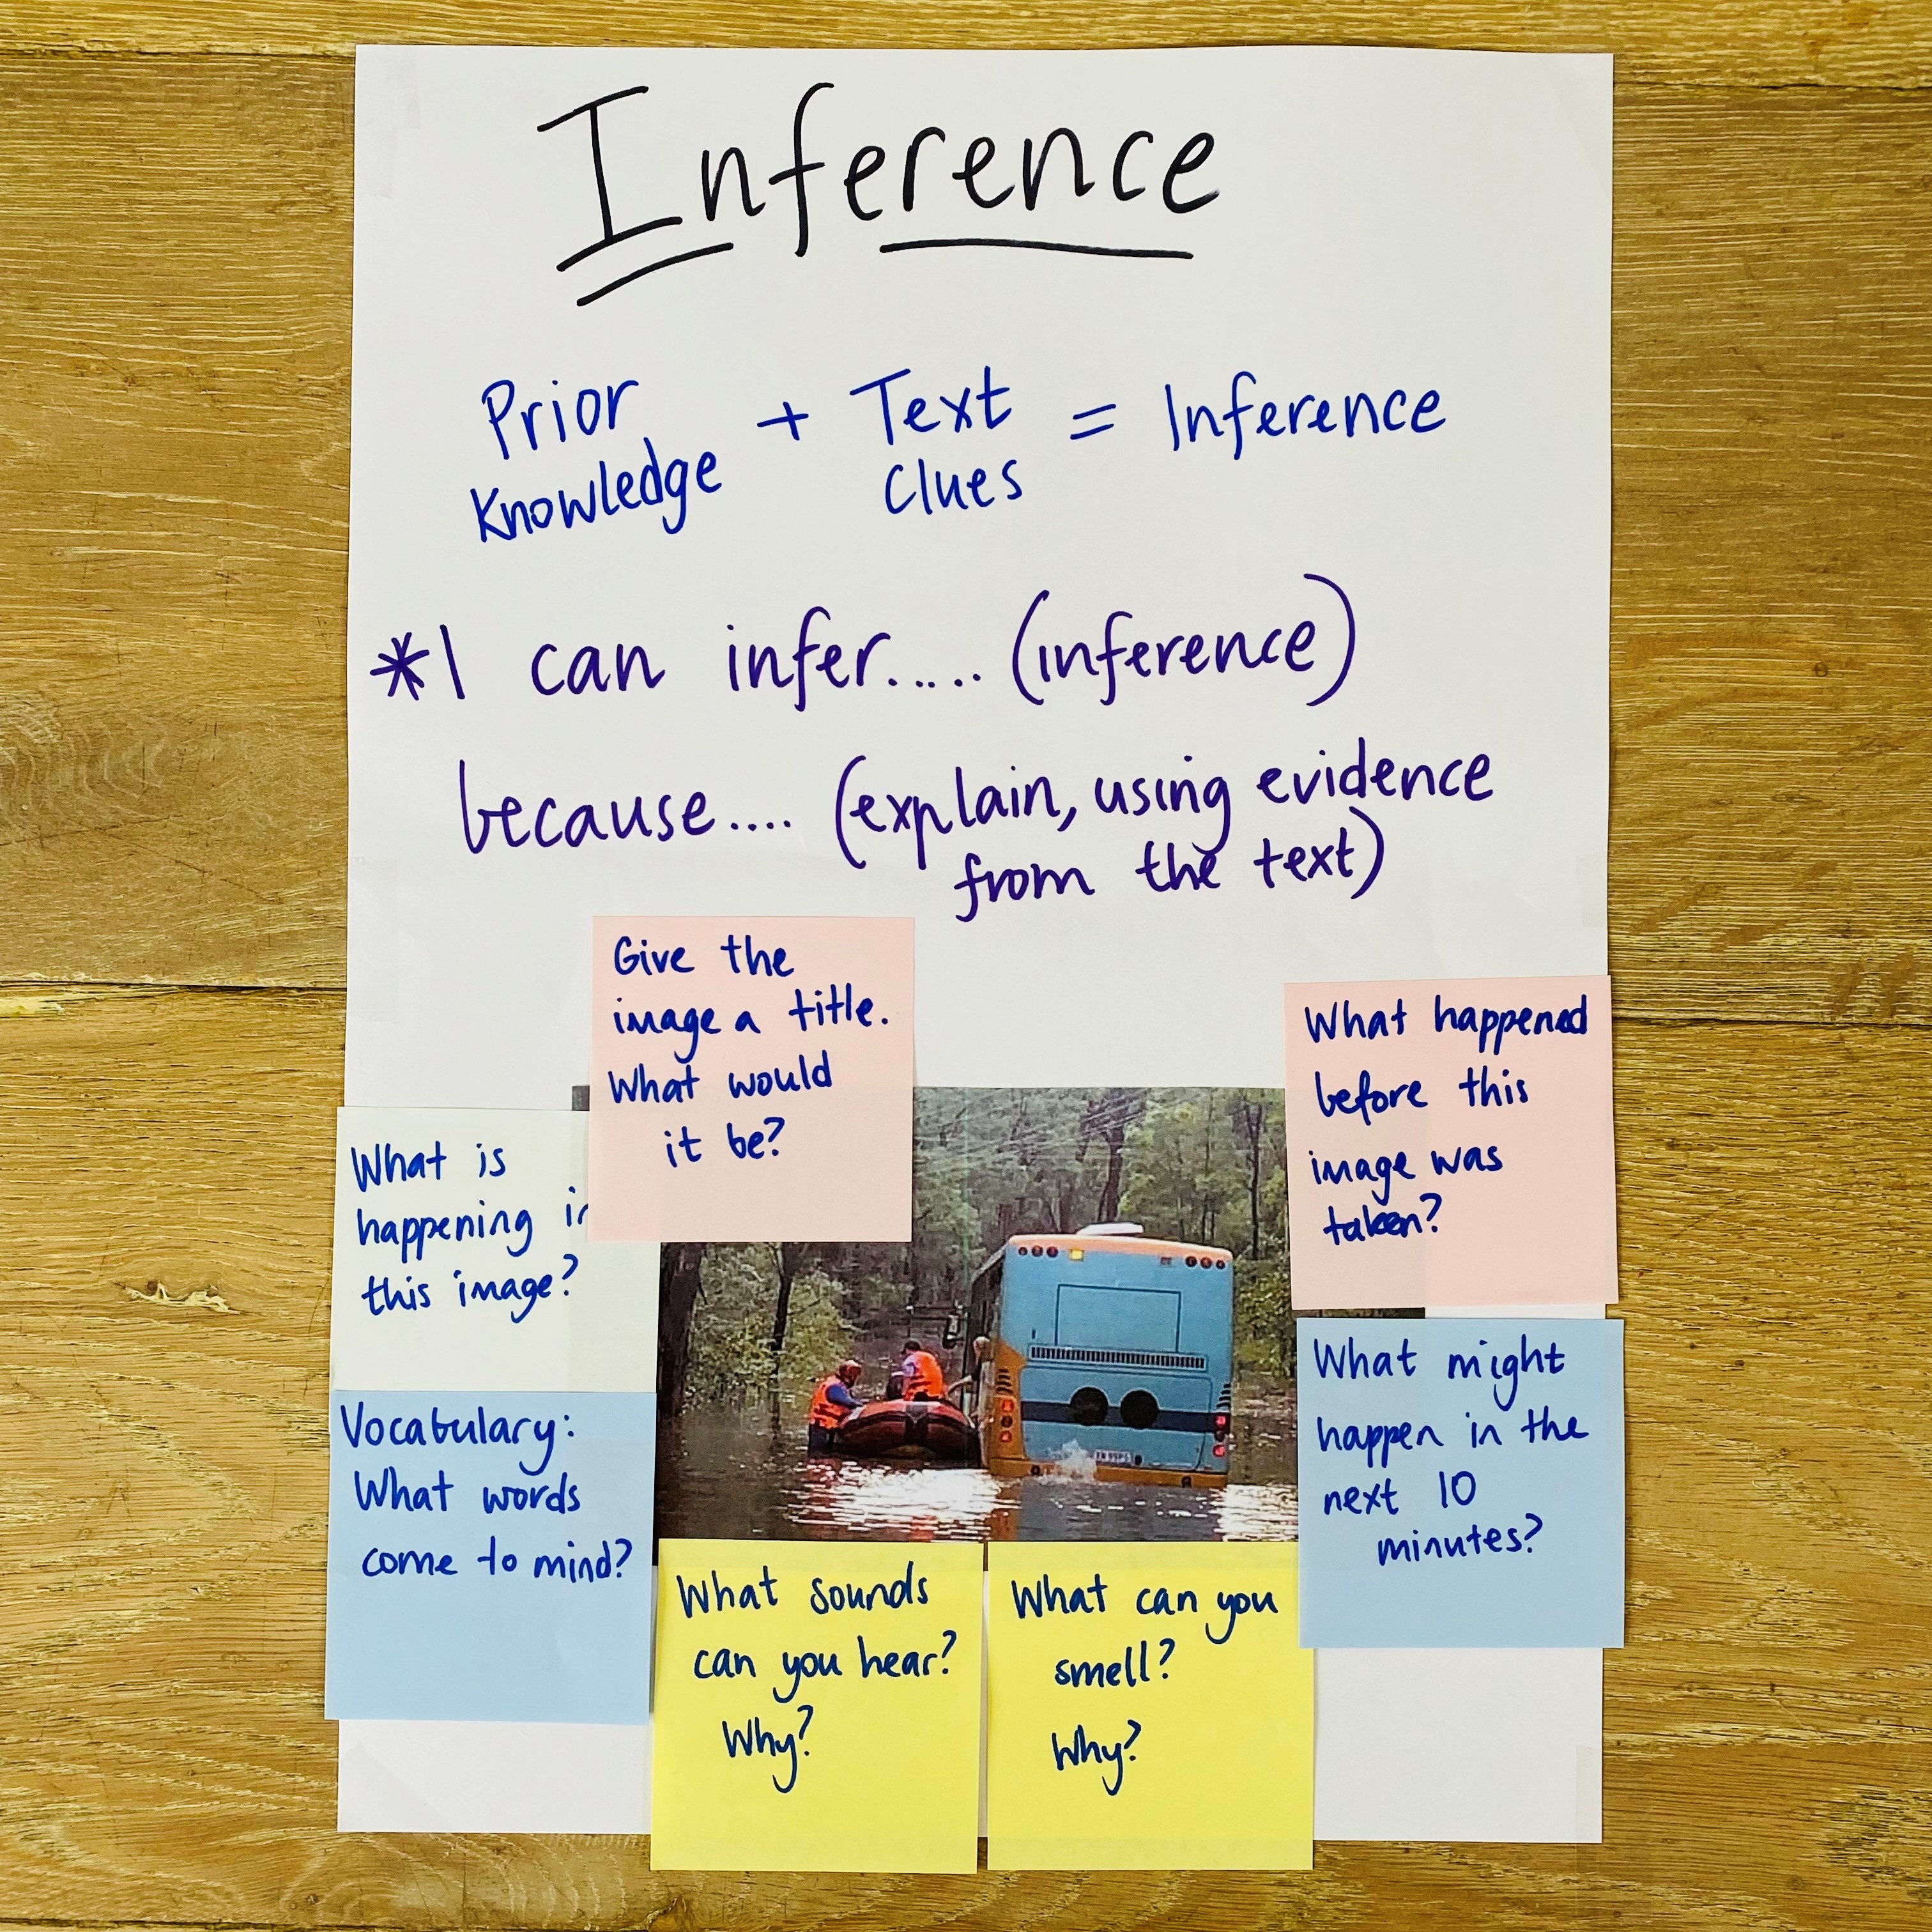 Inference
Prior + Text = Inference
Knowledge Clues
*I can infer..... (inference)
because.... (explain, using evidence
from the text)
Give the
image a title.
What would
it be?
What happened
before this
image was
taken?
What is
happening in
this image?
Vocabulary:
What words
come to mind?
What might
happen in the
next 10
minutes?
What sounds
can you hear?
Why?
What can you
smell?
Why?